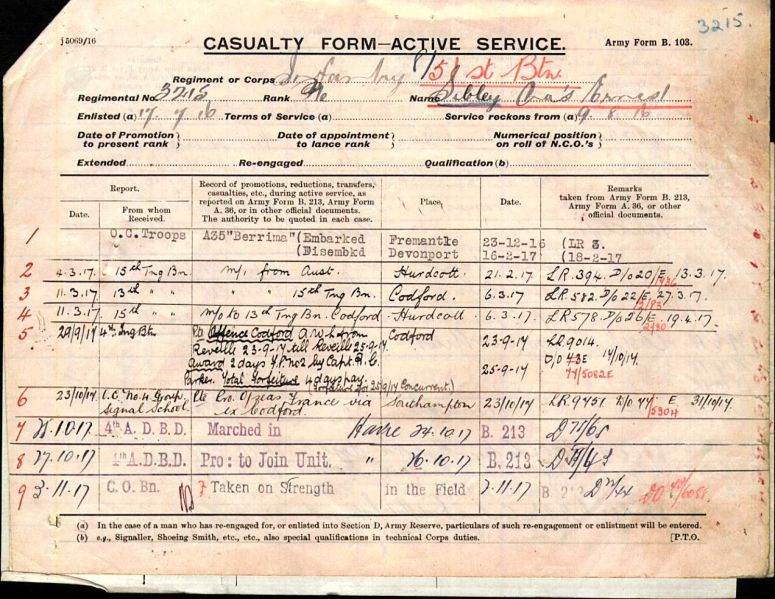 3215.
j5069/16
CASUALTY FORM—ACTIVE SERVICE.
Army Form B. 103.
Regiment or Corps 51st Btn.
Regimental No. 3215 Rank Pte Name Sibley Chas Ernest
Enlisted (a) 17 7 16 Terms of Service (a) Service reckons from (a) 9 8 16
Date of Promotion to present rank } Date of appointment to lance rank } Numerical position on roll of N.C.O.'s }
Extended Re-engaged Qualification (b)
Report. Record of promotions, reductions, transfers, casualties, etc., during active service, as reported on Army Form B. 213, Army Form A. 36, or in other official documents. The authority to be quoted in each case. Place. Date. Remarks taken from Army Form B. 213, Army Form A. 36, or other official documents.
Date. From whom Received.
1 O.C. Troops A35 "Berrima" (Embarked Fremantle 23-12-16 (LR 3.
(Disembkd Devonport 16-2-17 (18-2-17
2 4.3.17. 15th Tng Bn. m/i from Aust. Hurdcott. 21.2.17. LR.394. D/o 20/E 13.3.17.
3 11.3.17. 13th " " " " 15th Tng Bn. Codford. 6.3.17. LR.582. D/o 22/E. 27.3.17.
4 11.3.17. 15th " " m/o to 13th Tng Bn. Codford. Hurdcott. 6.3.17. LR578. D/o 26/E. 19.4.17.
5 29/9/17 4th Tng Btn Pte Offence Codford a.w.l. from Codford 23-9-17 LR.9014.
Reveille 23-9-17 till Reveille 25-9-17.
Award 2 days F.P. No 2 by Capt. 25-9-17 D/o 43E 17/10/17.
Parkes. Total forfeiture 4 days pay. 77/5082E
(forfeiture for 25/9/17 Concurrent.)
6 23/10/17. O.C. No. 4 Group Signal School. Pte Pro. O/seas France via ex Codford. Southampton 23/10/17 LR9451 D/o 44 E 31/10/17.
7 25.10.17 4th A.D.B.D. Marched in Havre 24.10.17 B. 213
8 27.10.17 4th A.D.B.D. Pro: to Join Unit. " 26.10.17 B. 213
9 3.11.17 C.O. Bn. Taken on Strength in the Field 2.11.17 B 213
(a) In the case of a man who has re-engaged for, or enlisted into Section D, Army Reserve, particulars of such re-engagement or enlistment will be entered.
(b) e.g., Signaller, Shoeing Smith, etc., etc., also special qualifications in technical Corps duties. [P.T.O.